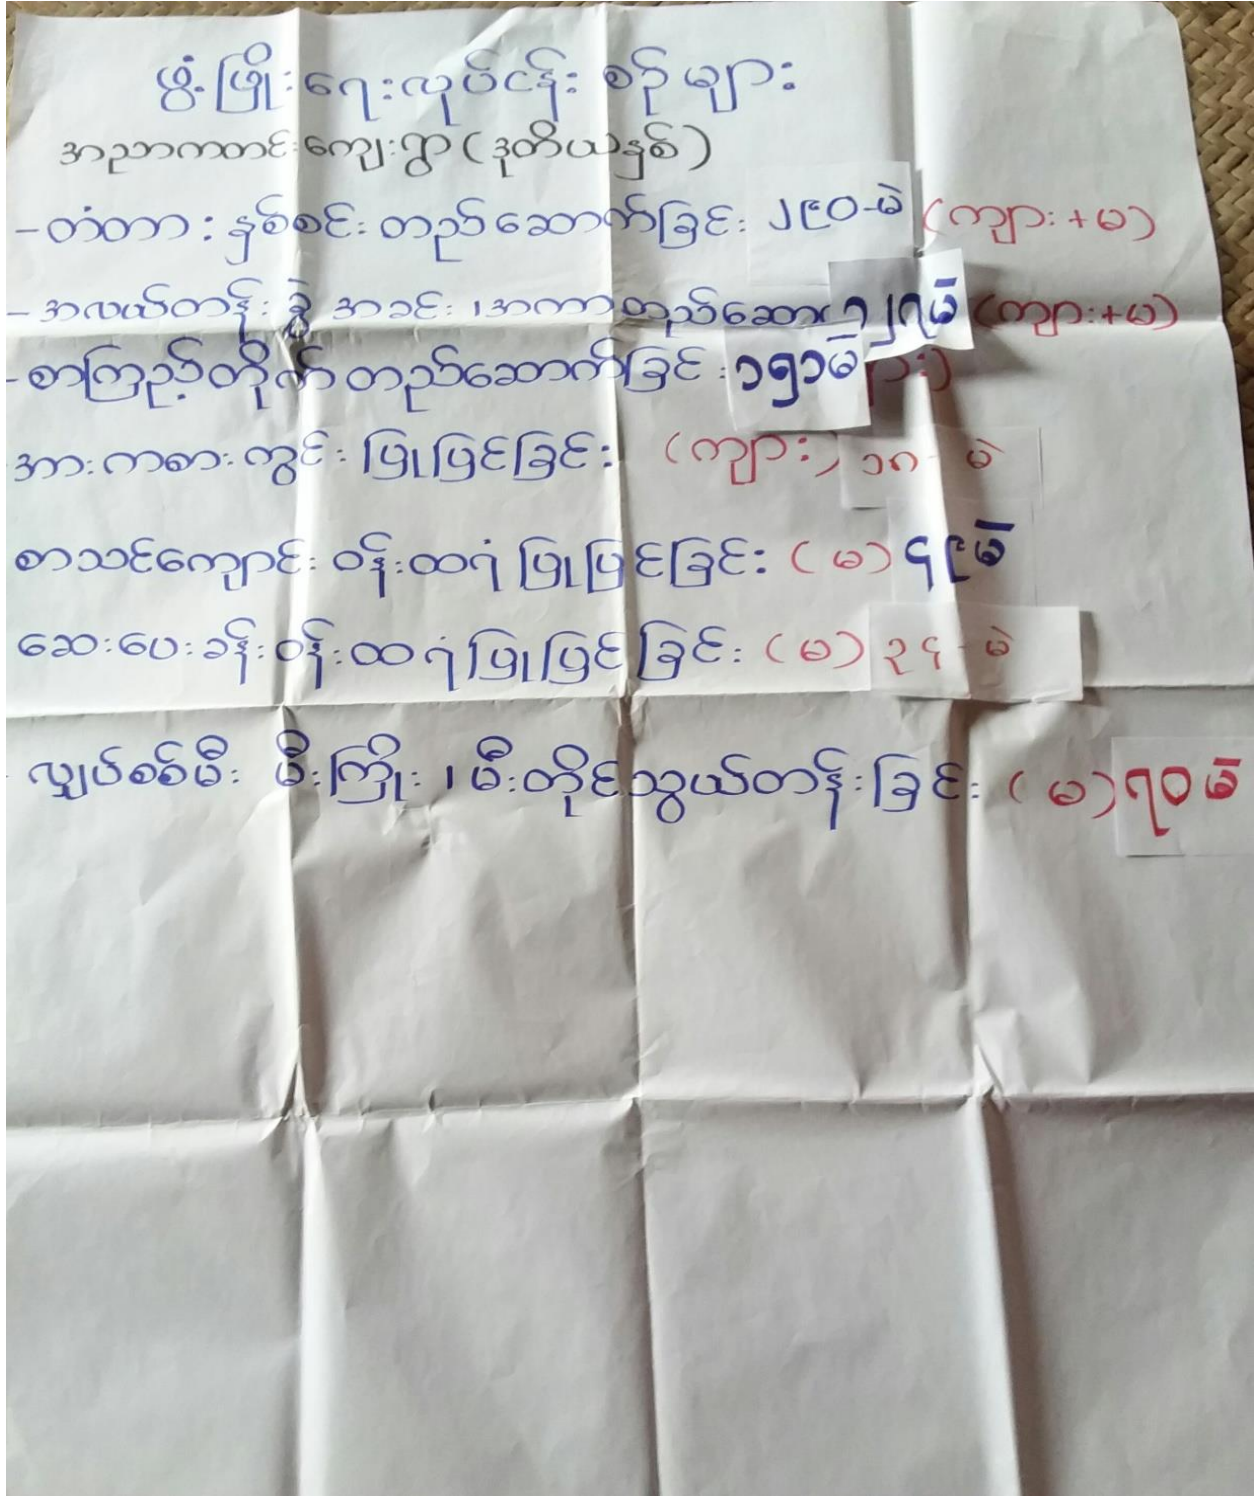 ဖွံ့ဖြိုးရေးလုပ်ငန်း စဉ်များ
အညာကထင်းကျေးရွာ (ဒုတိယနှစ်)
- တံတား : နှစ်စင်း တည်ဆောက်ခြင်း ၂၉၀-မဲ (ကျား + မ)
- အလယ်တန်း ခွဲ အခင်း ၊အကာတည်ဆောက် ၁၂၇မဲ (ကျား+မ)
- စာကြည့်တိုက်တည်ဆောက်ခြင်း ၁၅၁မဲ
အားကစားကွင်း ပြုပြင်ခြင်း (ကျား) ၁၈ မဲ
စာသင်ကျောင်း ဝန်းထရံ ပြုပြင်ခြင်း (မ) ၄၉မဲ
ဆေးပေးခန်းဝန်းထရံပြုပြင်ခြင်း (မ) ၃၄-မဲ
လျှပ်စစ်မီး မီးကြိုး ၊ မီးတိုင်သွယ်တန်းခြင်း (မ) ၇၀မဲ